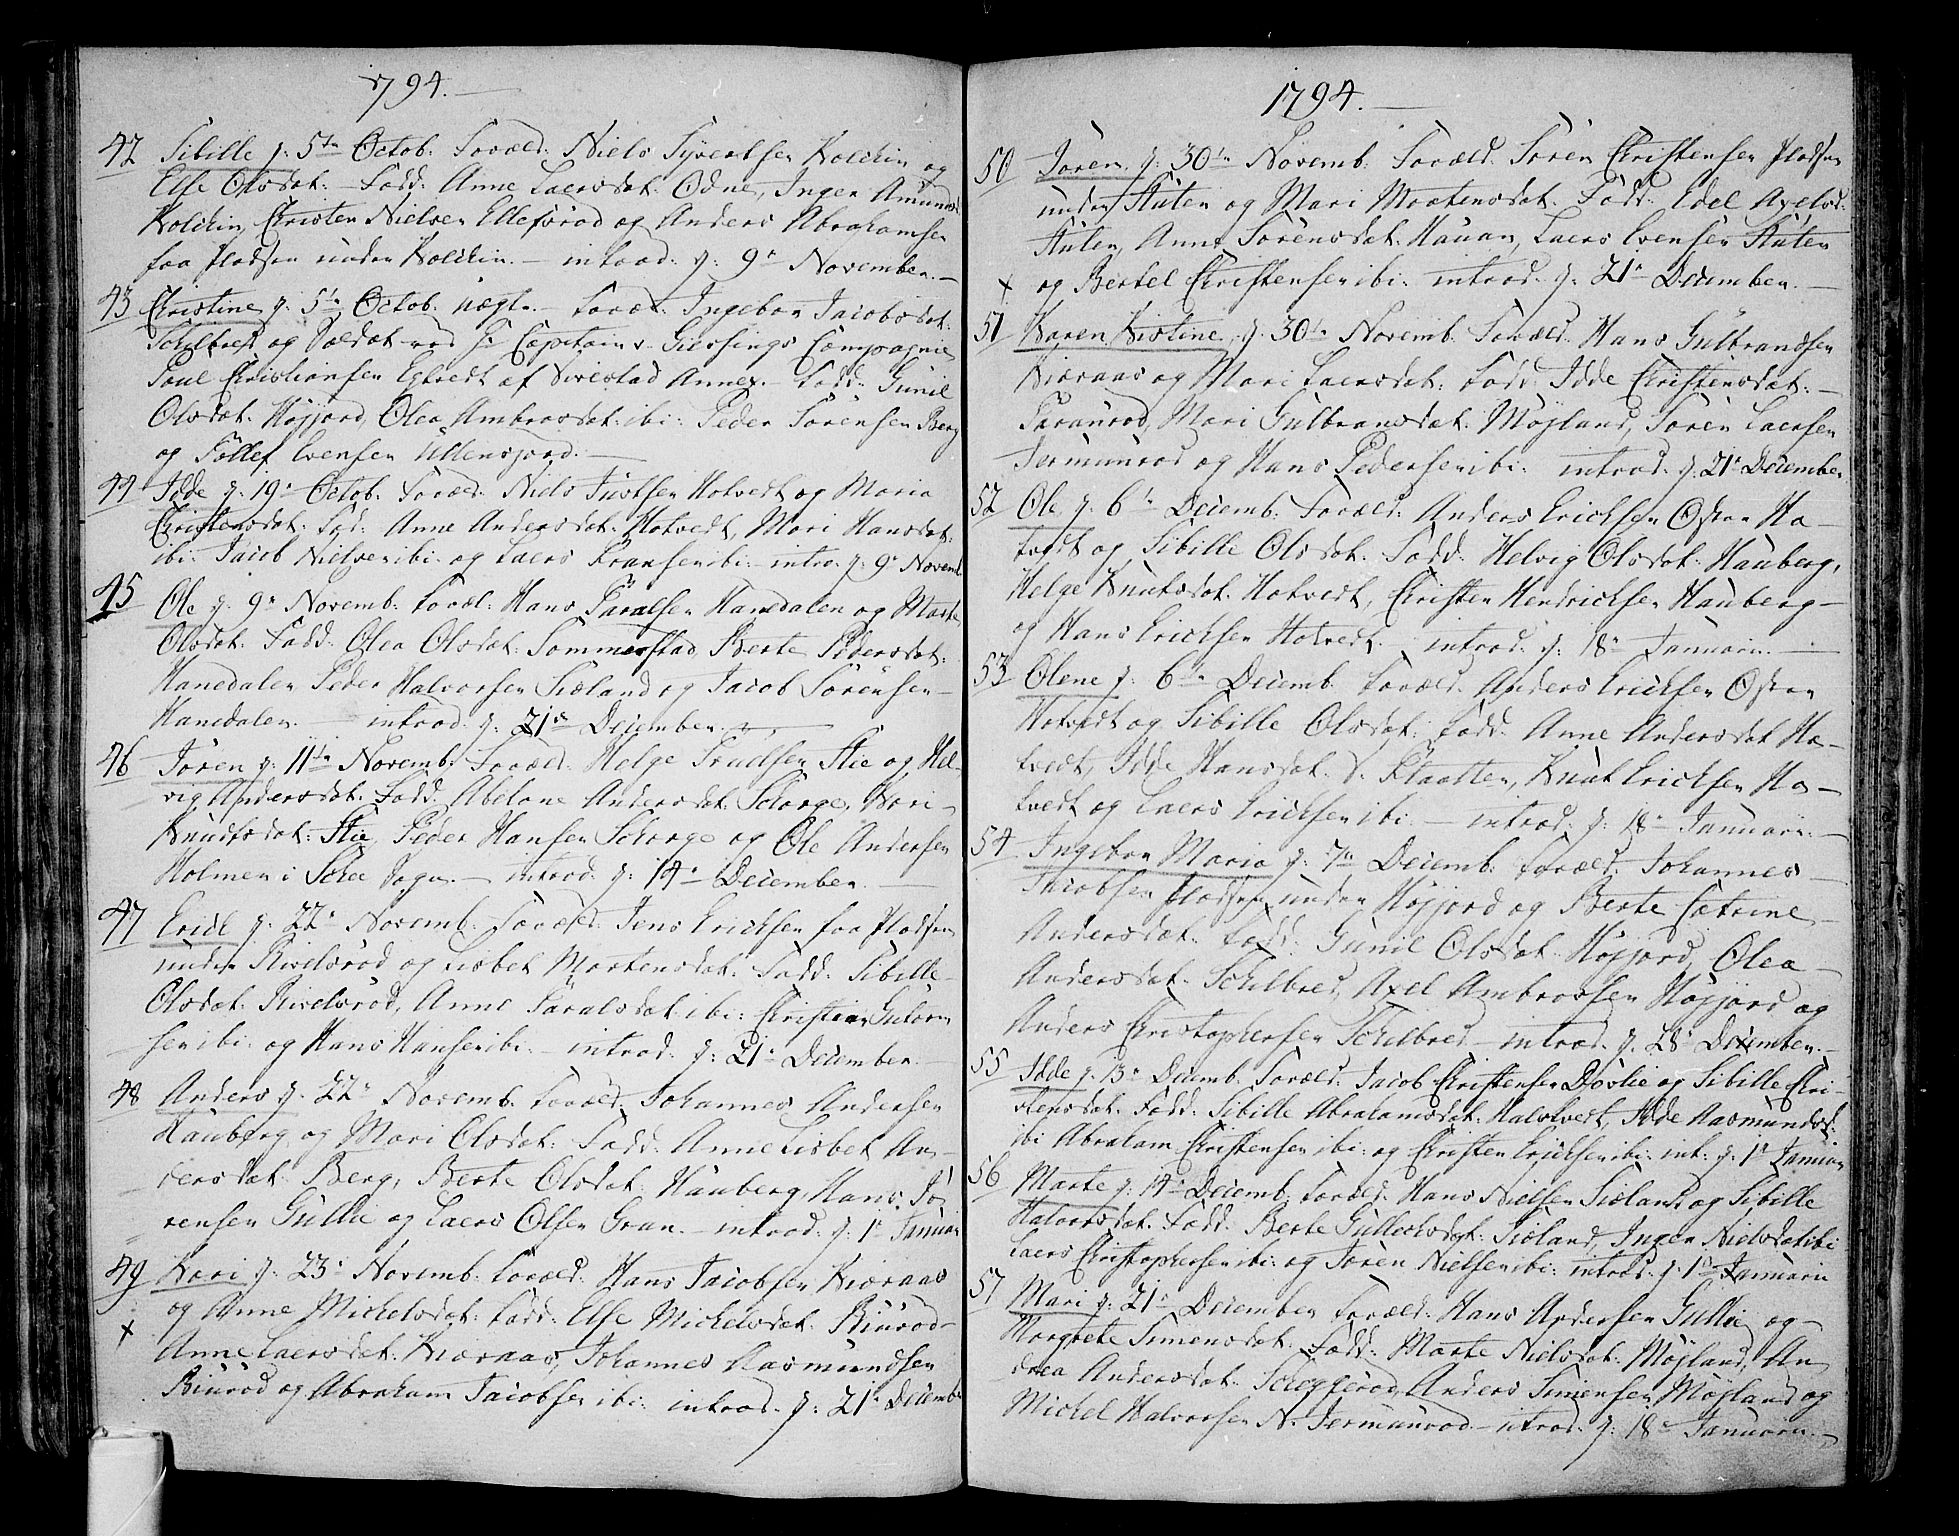 1794.
42 Sibille g: 5te Octob: Foræld: Niels Syvertsen Kolckin og
Else Olsdat: Fadd: Anne Laersdat: Odne, Inger Amunds:
Kolckin, Christen Nielsen Ellefsrød og Anders Abrahamsen
paa Pladsen under Kolckin. – introd: g: 9de November. –
43 Christine g: 5te Octob: uægte – Foræl: Ingebor Jacobsdat:
Schelbred og Soldat ved Hr Capitain Giessings Compagnie
Poul Christiansen af Annex. – Fadd: Gunil
Olsdat: Højjord, Olea Ambrosdat: ibi: Peder Sørensen Berg
og Tollef Evensen
44 Idde g: 19de Octob: Foræld: Niels Justsen Hotvedt og Maria
Christensdat: Fad: Anne Andersdat: Hotvedt, Mari Hansdat:
ibi: Jacob Nielsen ibi: og Laers Fransen ibi: – intro: g: 9de Novemb
45 Ole g: 9de Novemb: Foræl: Hans Paralsen Hanedalen og Marte
Olsdat: Fadd: Olea Olsdat: Sommerstad, Berte Pedersdat:
Hanedalen Peder Halvorsen Siæland og Jacob Sørensen –
Hanedalen. – introd: g: 21de December.
46 Søren g: 11te Novemb: Foræld: Helge Trulsen Stie og Hel-
vig Andersdat: Fadd: Abelone Andersdat: Schorge, Kari –
Knudsdat: Stie, Peder Hansen Schorge og Ole Andersen
Holmen i Schee Sogn. – introd: g: 14de December.
47 Erich g: 22de Novemb: Foræld: Jens Ericksen paa Pladsen
under Rivelsrød og Lisbet Mortensdat: Fadd: Sibille
Olsdat: Rivelsrød, Anne Paralsdat: ibi: Christian Gulbran
sen ibi: og Hans Hansen ibi: – introd: g: 21de December.
48 Anders g: 22de Novemb: Foræld: Johannes Andersen
Hauberg og Mari Olsdat: Fadd: Anne Lisbet An-
dersdat: Berg, Berte Olsdat: Hauberg, Hans Sø-
rensen Gullie og Laers Olsen Gran. – introd: g: 1te Januari
49 Kari g: 23de Novemb: Foræld: Hans Jacobsen Kiæraas
og Anne Michelsdat: Fadd: Else Michelsdat: Biurød
Anne Laersdat: Kiæraas, Johannes Aasmundsen
Biurød og Abraham Jacobsen ibi: introd: g: 21de Decemb:
1794.
50 Søren g: 30te Novemb: Foræld: Søren Christensen Pladsen
under Stulen og Mari Mortensdat: Fadd: Edel Axelsd:
Stulen, Anne Sørensdat: Hauan, Laers Evensen Stulen
og Bertel Christensen ibi: introd: g: 21de December. –
51 Karen Kistine, g: 30te Novemb: Foræld: Hans Gulbrandsen
Kiæraas og Mari Laersdat: Fadd: Idde Christensdat: –
Paraurød, Mari Gulbransdat: Møjland, Søren Laersen
Jermunrød og Hans Pedersen ibi: introd: g: 21de December
52 Ole g: 6te Decemb: Foræld: Anders Ericksen Østre Ho –
tvedt og Sibille Olsdat: Fadd: Helvig Olsdat: Hauberg,
Helge Knutsdat: Hotvedt, Christen Hendricksen Hauberg –
og Hans Ericksen Hotvedt. – introd: g: 18de Januarii. –
53 Olene g: 6te Decemb: Foræld: Anders Ericksen Østre
Hotvedt og Sibille Olsdat: Fadd: Anne Andersdat: Ho –
tvedt, Idde Hansdat: S: Flaatten, Knut Ericksen Ho –
tvedt og Laers Ericksen ibi: – introd: g: 18de Januarii. –
54 Ingebor Maria g: 7de Decemb: Foræld: Johannes –
Jacobsen Pladsen under Højjord og Berte Catrine –
Andersdat: Fadd: Gunil Olsdat: Højjord, Olea –
Andersdat: Schelbred, Axel Ambrosen Højjord og
Anders Christophersen Schelbred – introd: g: 28de December. –
55 Idde g: 13de Decemb: Foræld: Jacob Christensen Døvlie og Sibille Chri-
stensdat: Fadd: Sibille Abrahamsdat: Halvtvedt, Idde Aasmundsd:
ibi Abraham Christensen ibi: og Christen Ericksen ibi: int: g: 1te Januari
56 Marte g: 14de Decemb: Foræld: Hans Nielsen Siæland og Sibille
Halvorsdat: Fadd: Berte Gullechsdat: Siæland, Inger Nielsdat: ibi:
Laers Christophersen ibi: og Søren Nielsen ibi: introd: g: 1te Januarii
57 Mari g: 21de December Foræld: Hans Andersen Gullie og –
Margrete Simensdat: Fadd: Marte Nielsdat: Møjland, An
drea Andersdat: Scheggerød, Anders Simensen Møjland og
Michel Halvorsen N: Jermunrød – introd: g: 18de Januarii. –